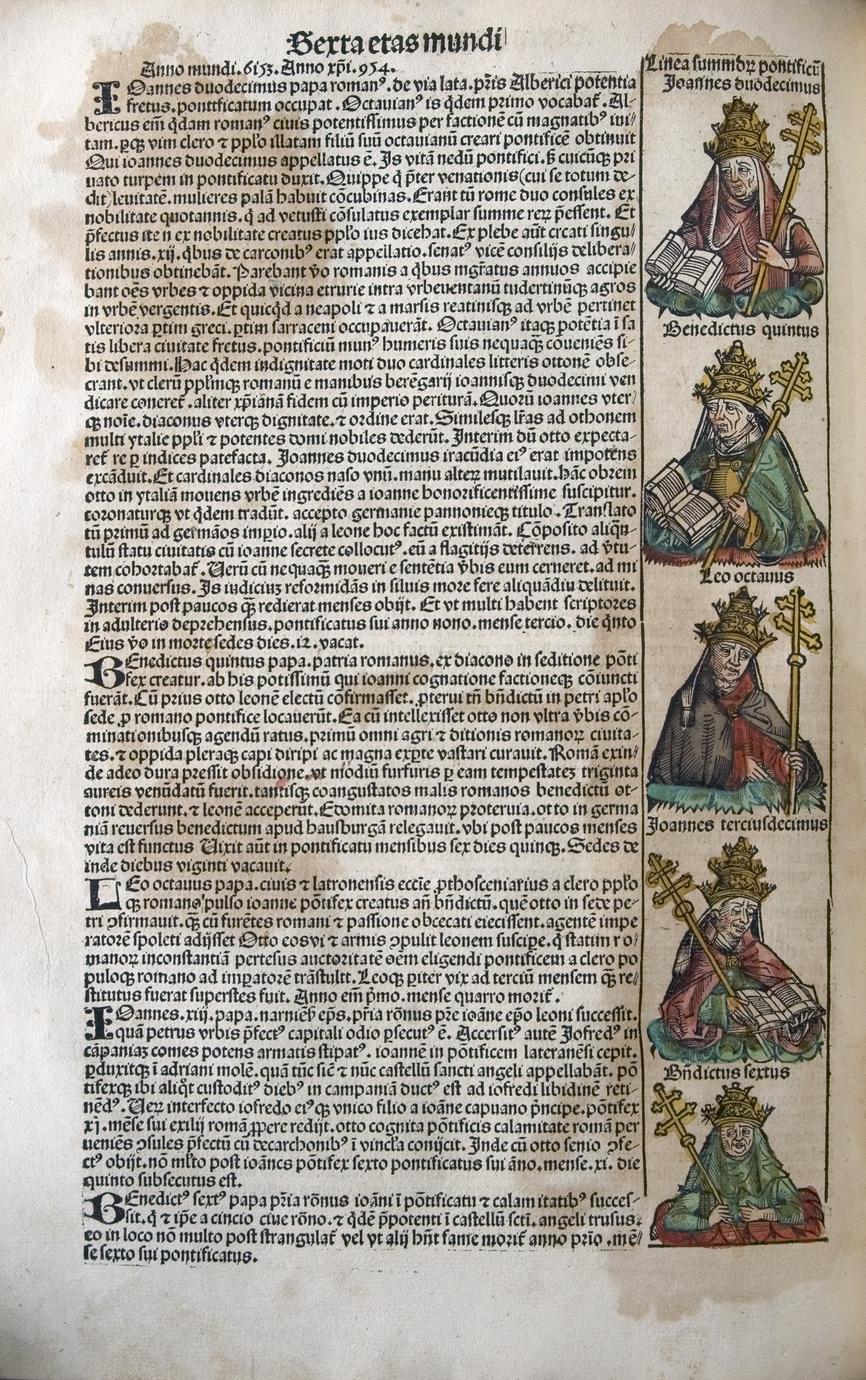 Sexta etas mundi
Anno mundi.6153.Anno xp̄i.954.
IOannes duodecimus papa romanꝰ.de via lata.pr̄is Alberici potentia
fretus.ponttficatum occupat. Octauianꝰ is q̄dem primo vocabat̄. Al-
bericus em̄ q̄dam romanꝰ ciuis potentissimus per factionē cū magnatibꝰ ini/
tam.ꝑqꝫ vim clero ⁊ pp̄lo illatam filiū suū octauianū creari pontificē obtinuit
Qui ioannes duodecimus appellatus ē. Js vitā nedū pontifici.ꝫ cuicūqꝫ pri
uato turpem in pontificatu duxit. Quippe q̄ p̄ter venationis(cui se totum de-
dit)leuitatē.mulieres palā habuit cōcubinas. Erant tū rome duo consules ex
nobilitate quotannis.q̄ ad vetusti cōsulatus exemplar summe reꝝ p̄essent. Et
p̄fectus ite n ex nobilitate creatus pp̄lo ius dicebat. Ex plebe aūt crcati singu/
lis annis.xij.q̄bus de carconibꝰ erat appellatio.senatꝰ vicē consilijs delibera/
tionibus obtinebāt. Parebant v̄o romanis a q̄bus mgr̄atus annuos accipie
bant oēs vrbes ⁊ oppida vicina etrurie intra vrbeuentanū tudertinūqꝫ agros
in vrbē vergentis. Et quicq̄d a neapoli ⁊ a marsis reatinisqꝫ ad vrbē pertinet
vlteriora ꝑtim greci.ꝑtim sarraceni occupauerāt. Octauianꝰ itaqꝫ potētia ī sa
tis libera ciuitate fretus.pontificiū munꝰ humeris suis nequaqꝫ coueniēs si-
bi desummi. Hac q̄dem indignitate moti duo cardinales litteris ottonē obse-
crant.vt clerū pp̄lmqꝫ romanū e manibus berēgarij ioannisqꝫ duodecimi ven
dicare coneret̄.aliter xp̄ianā fidem cū imperio periturā. Quorū ioannes vter/
qꝫ noīe.diaconus vterqꝫ dignitate.⁊ ordine erat. Similesqꝫ lr̄as ad othonem
multi ytalie pp̄li ⁊ potentes domi nobiles dederūt. Interim dū otto expecta-
ret̄ re ꝑ indices patefacta. Joannes duodecimus iracūdia eiꝰ erat impotens
excāduit. Et cardinales diaconos naso vnū.manu alterꝫ mutilauit.hāc obrem
otto in ytaliā mouens vrbē ingrediēs a ioanne honorificentissime suscipitur.
coronaturqꝫ vt q̄dem tradūt. accepto germanie pannonieqꝫ titulo. Translato
tū primū ad germanos impio.alij a leone hoc factū existimāt. Cōposito aliqn̄-
tulū statu ciuitatis cū ioanne secrete collocutꝰ.eū a flagitijs deterrens. ad v̄tu-
tem cohortabat̄. Uerū cū nequaqꝫ moueri e sententia v̄bis eum cerneret. ad mi
nas conuersus. Js iudiciuꝫ reformidās in siluis more fere aliquādiu delituit.
Interim post paucos q̄ꝫ redierat menses obijt. Et vt multi habent scriptores
in adulterio deprehensus.pontificatus sui anno nono.mense tercio. die q̄nto
Eius v̄o in morte sedes dies.12.vacat.
BEnedictus quintus papa.patria romanus.ex diacono in seditione pōti
fex creatur.ab his potissimū qui ioanni cognatione factioneqꝫ cōiuncti
fuerāt. Cū prius otto leonē electū cōfirmasset. ꝓterui tn̄ bn̄dictū in petri aplo
sede ꝓ romano pontifice locauerūt. Ea cū intellexisset otto non vltra v̄bis cō-
minationibusqꝫ agendū ratus.primū omni agri ⁊ ditionis romanoꝝ ciuita-
tes.⁊ oppida pleraqꝫ capi diripi ac magna exꝑte vastari curauit. Romā exin/
de adeo dura pressit obsidione.vt modiū furfuris ꝑ eam tempestateꝫ triginta
aureis venūdatū fuerit.tantisqꝫ coangustatos malis romanos benedictū ot-
toni dederunt.⁊ leonē acceperūt. Edomita romanoꝝ proteruia.otto in germa
niā reuersus benedictum apud hausburgā relegauit.vbi post paucos menses
vita est functus Uixit aūt in pontificatu mensibus sex dies quinqꝫ. Sedes de
inde diebus viginti vacauit.
LEo octauus papa.ciuis ⁊ latronensis eccīe ꝓthosceniarius a clero pp̄lo
qꝫ romano pulso ioanne pōtifex creatus an̄ bn̄dictū.quē otto in sede pe-
tri ꝯfirmauit.q̄ꝫ cū furētes romani ⁊ passione obcecati eiecissent.agentē impe
ratorē spoleti adijsset Otto eos vi ⁊ armis ꝯpulit leonem suscipe.q̄ statim ro/
manoꝝ inconstantiā pertesus auctoritatē oēm eligendi pontificem a clero po
puloqꝫ romano ad imꝑatorē trāstulit. Leoqꝫ ꝑiter vix ad terciū mensem q̄ꝫ re/
stitutus fuerat superstes fuit. Anno em̄ p̄mo.mense quarro morit̄.
IOannes.xiij.papa.narniēn̄ ep̄s.pr̄ia rōnus pr̄e ioāne ep̄o leoni successit.
quā petrus vrbis p̄fectꝰ capitali odio ꝑsecutꝰ ē. Accersitꝰ autē Jofredꝰ in
cāpaniaꝫ comes potens armatis stipatꝰ. ioannē in pōtificem lateranēsi cepit.
ꝑduxitqꝫ ī adriani molē.quā tūc siē ⁊ nūc castellū sancti angeli appellabāt. pō
tifexqꝫ ibi aliq̄t custoditꝰ diebꝰ in campaniā ductꝰ est ad iofredi libidinē reti-
nēdꝰ. Ueꝝ interfecto iofredo eiꝰqꝫ vnico filio a ioāne capuano p̄ncipe.pōtifex
xj.mēse sui exilij romā ꝓpere redijt. otto cognita pōtificis calamitate romā per
ueniēs ꝯsules p̄fectū cū decarchonibꝰ ī vincl̄a conijcit. Inde cū otto senio ꝯfe-
ctꝰ obijt.nō ml̄to post ioānes pōtifex sexto pontificatus sui āno.mense.xi. die
quinto subsecutus est.
BEnedictꝰ sextꝰ papa pr̄ia rōnus ioāni ī pōtificatu ⁊ calamitatibꝰ succes-
sit.q̄ ⁊ ip̄e a cincio ciue rōno.⁊ q̄dē p̄potenti ī castellū scti. angeli trusus.
eo in loco nō multo post strangulat̄ vel vt alij hn̄t fame morit̄ anno pr̄io .mē/
se sexto sui pontificatus.
Linea summoꝝ pontificū
Joannes duodecimus
Benedictus quintus
Leo octauus
Joannes terciusdecimus
Bn̄dictus sextus